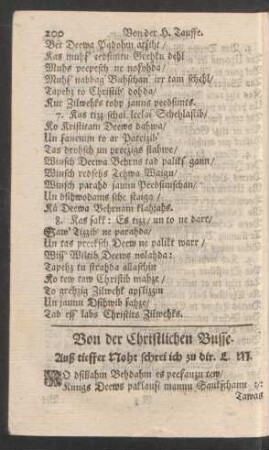 200 Von der H. Tauffe.
Ber Deewa Padohm atfcht/
Kas muhs' eedfimtu Grehku dehl
Muhs' peepesch ne nofohda/
Muhs' nabbag' Buhschan' irr tam fchehl/
Tapehz to Christib' dohda/
Kur Zilweks tohp jauns peedsimts.
7. Kas tizz schai leelai Schehlastib/
Ko Kristitam Deews dahwa/
Un fanemm to ar Pateizib'
Tas drohsch un preezigs stahwe/
Winsch Deewa Behrns tad paliks gann/
Winsch redsehs Tehwa Waigu/
Winsch parahd jaunu Peedsimschan/
Un dsihwodams sche staiga/
Kà Deewa Behrnam klahjahs.
8. Kas fakk: Es tizz/ un to ne dare/
Saw' Tizzib' ne parahda/
Un tas preeksch Deew' ne palikt warr/
Wiss' Wiltib Deews nolahda:
Tapehz tu strahda allaschin
Ko tew taw Christib mahze/
To grehzig Zilwehk apflizzin
Un jaunu Dsihwib sahze/
Tad ess' labs Christits Zilwehks.
Von der Christlichen Busse.
Auß tieffer Noht schrei ich zu dir. L. M.
NO dsillahm Behdahm es peesauzu tew/
Kungs Deews paklause mannu Saukschanu
Tawas